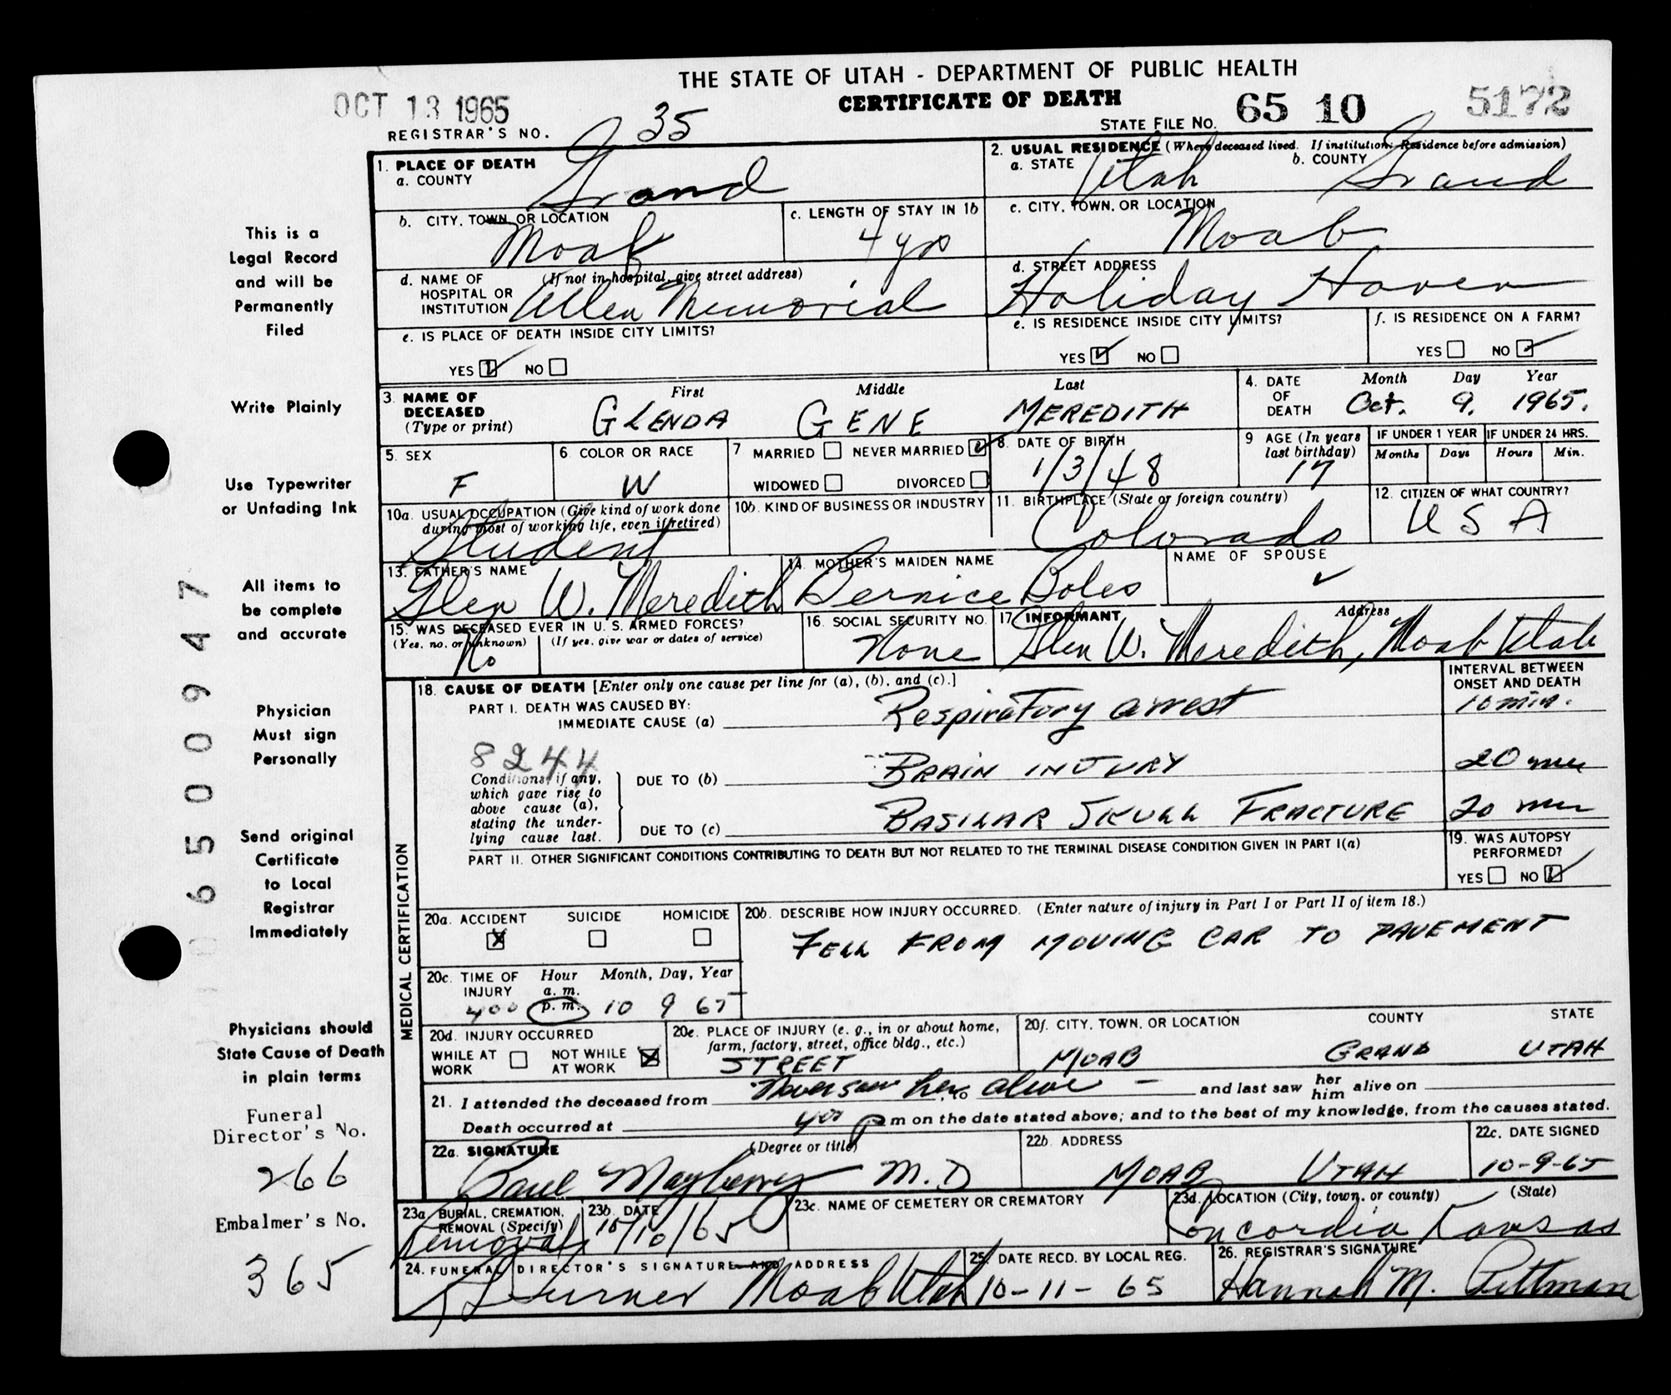 THE STATE OF UTAH - DEPARTMENT OF PUBLIC HEALTH
CERTIFICATE OF DEATH
OCT 13 1965
REGISTRAR'S NO. 35
STATE FILE NO. 65 10 5172
1. PLACE OF DEATH
a. COUNTY Grand
2. USUAL RESIDENCE (Where deceased lived. If institution: Residence before admission)
a. STATE Utah b. COUNTY Grand
b. CITY, TOWN, OR LOCATION Moab
c. LENGTH OF STAY IN 1b 4 yrs
c. CITY, TOWN, OR LOCATION Moab
d. NAME OF HOSPITAL OR INSTITUTION (If not in hospital, give street address) Allen Memorial
d. STREET ADDRESS Holiday Haven
e. IS PLACE OF DEATH INSIDE CITY LIMITS?
YES NO
e. IS RESIDENCE INSIDE CITY LIMITS?
YES NO
f. IS RESIDENCE ON A FARM?
YES NO
3. NAME OF DECEASED (Type or print) First Middle Last
GLENDA GENE MEREDITH
4. DATE OF DEATH Month Day Year
Oct. 9. 1965.
5. SEX F
6 COLOR OR RACE W
7 MARRIED NEVER MARRIED
WIDOWED DIVORCED
8. DATE OF BIRTH 1/3/48
9 AGE (In years last birthday) 17
IF UNDER 1 YEAR Months Days
IF UNDER 24 HRS. Hours Min.
10a. USUAL OCCUPATION (Give kind of work done during most of working life, even if retired) Student
10b. KIND OF BUSINESS OR INDUSTRY
11. BIRTHPLACE (State or foreign country) Colorado
12. CITIZEN OF WHAT COUNTRY? USA
13. FATHER'S NAME Glen W. Meredith
14. MOTHER'S MAIDEN NAME Bernice Boles
NAME OF SPOUSE
15. WAS DECEASED EVER IN U. S. ARMED FORCES?
(Yes, no, or unknown) (If yes, give war or dates of service)
No
16. SOCIAL SECURITY NO. None
17 INFORMANT Address
Glen W. Meredith, Moab Utah
MEDICAL CERTIFICATION
18. CAUSE OF DEATH [Enter only one cause per line for (a), (b), and (c).]
INTERVAL BETWEEN ONSET AND DEATH
PART I. DEATH WAS CAUSED BY:
IMMEDIATE CAUSE (a) Respiratory arrest 10 min.
8244
Conditions, if any, which gave rise to above cause (a), stating the underlying cause last.
DUE TO (b) BRAIN INJURY 20 min
DUE TO (c) BASILAR SKULL FRACTURE 20 min
PART II. OTHER SIGNIFICANT CONDITIONS CONTRIBUTING TO DEATH BUT NOT RELATED TO THE TERMINAL DISEASE CONDITION GIVEN IN PART I(a)
19. WAS AUTOPSY PERFORMED?
YES NO
20a. ACCIDENT SUICIDE HOMICIDE
20b. DESCRIBE HOW INJURY OCCURRED. (Enter nature of injury in Part I or Part II of item 18.)
FELL FROM MOVING CAR TO PAVEMENT
20c. TIME OF INJURY Hour a. m. p. m. Month, Day, Year
400 10 9 65
20d. INJURY OCCURRED
WHILE AT WORK NOT WHILE AT WORK
20e. PLACE OF INJURY (e. g., in or about home, farm, factory, street, office bldg., etc.)
STREET
20f. CITY, TOWN, OR LOCATION COUNTY STATE
MOAB GRAND UTAH
21. I attended the deceased from Never saw her alive - to and last saw her him alive on
Death occurred at 400 p m on the date stated above; and to the best of my knowledge, from the causes stated.
22a. SIGNATURE (Degree or title)
Paul Mayberry M.D
22b. ADDRESS
MOAB UTAH
22c. DATE SIGNED
10-9-65
23a BURIAL, CREMATION, REMOVAL (Specify)
Removal
23b. DATE
10/10/65
23c. NAME OF CEMETERY OR CREMATORY
23d. LOCATION (City, town, or county) (State)
Concordia Kansas
24. FUNERAL DIRECTOR'S SIGNATURE AND ADDRESS
Turner Moab Utah
25. DATE RECD. BY LOCAL REG.
10-11-65
26. REGISTRAR'S SIGNATURE
Hannah M. Pittman
This is a
Legal Record
and will be
Permanently
Filed
Write Plainly
Use Typewriter
or Unfading Ink
All items to
be complete
and accurate
Physician
Must sign
Personally
Send original
Certificate
to Local
Registrar
Immediately
Physicians should
State Cause of Death
in plain terms
Funeral
Director's No.
266
Embalmer's No.
365
6500947